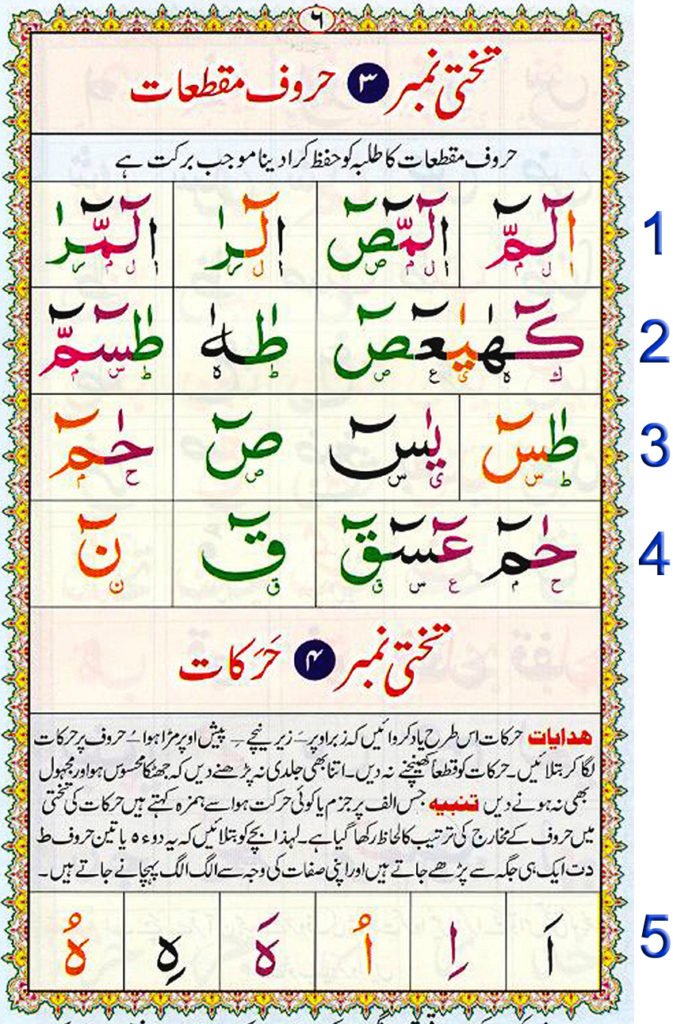 ٦
تختی نمبر ٣ حروف مقطعات
حروف مقطعات کا طلبہ کو حفظ کرا دینا موجب برکت ہے
الٓمّٓ الٓمّٓصٓ الٓرٰ الٓمّٓرٰ 1
ا ل م ا ل م ص ا ل ر ا ل م ر
كٓهٰيٰعٓصٓ طٰهٰ طٰسٓمّٓ 2
ك ه ی ع ص ط ه ط س م
طٰسٓ يٰسٓ صٓ حٰمٓ 3
ط س ی س ص ح م
حٰمٓ عٓسٓقٓ قٓ نٓ 4
ح م ع س ق ق ن
تختی نمبر ۴ حَرَکات
ھدایات حرکات اس طرح یاد کروائیں کہ زبر اوپر ـَ زیر نیچے ـِ پیش اوپر مڑا ہوا ـُ حروف پر حرکات
لگا کر بتلائیں۔ حرکات کو قطعاً کھینچنے نہ دیں۔ اتنا بھی جلدی نہ پڑھنے دیں کہ جھٹکا محسوس ہو اور مجہول
بھی نہ ہونے دیں تنبیہ جس الف پر جزم یا کوئی حرکت ہو اسے ہمزہ کہتے ہیں حرکات کی تختی
میں حروف کے مخارج کی ترتیب کا لحاظ رکھا گیا ہے۔ لہذا بچے کو بتلائیں کہ یہ دو ء ہ یا تین حروف ط
د ت ایک ہی جگہ سے پڑھے جاتے ہیں اور اپنی صفات کی وجہ سے الگ الگ پہچانے جاتے ہیں۔
اَ اِ اُ هَ هِ هُ 5